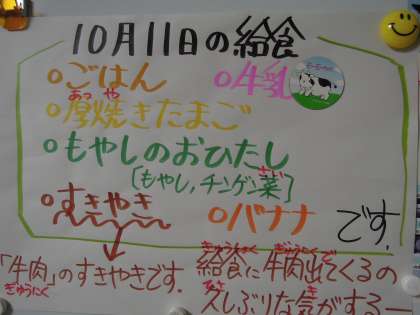 10月11日の給食
○ごはん ○牛乳
あつ や
○厚焼きたまご
○もやしのおひたし
[もやし,チンゲン菜]
さい
○すきやき ○バナナ です.
「牛肉」のすきやきです.
ぎゅうにく
きゅうしょく ぎゅうにく
給食に牛肉出てくるの
ひさ き
久しぶりな気がするー